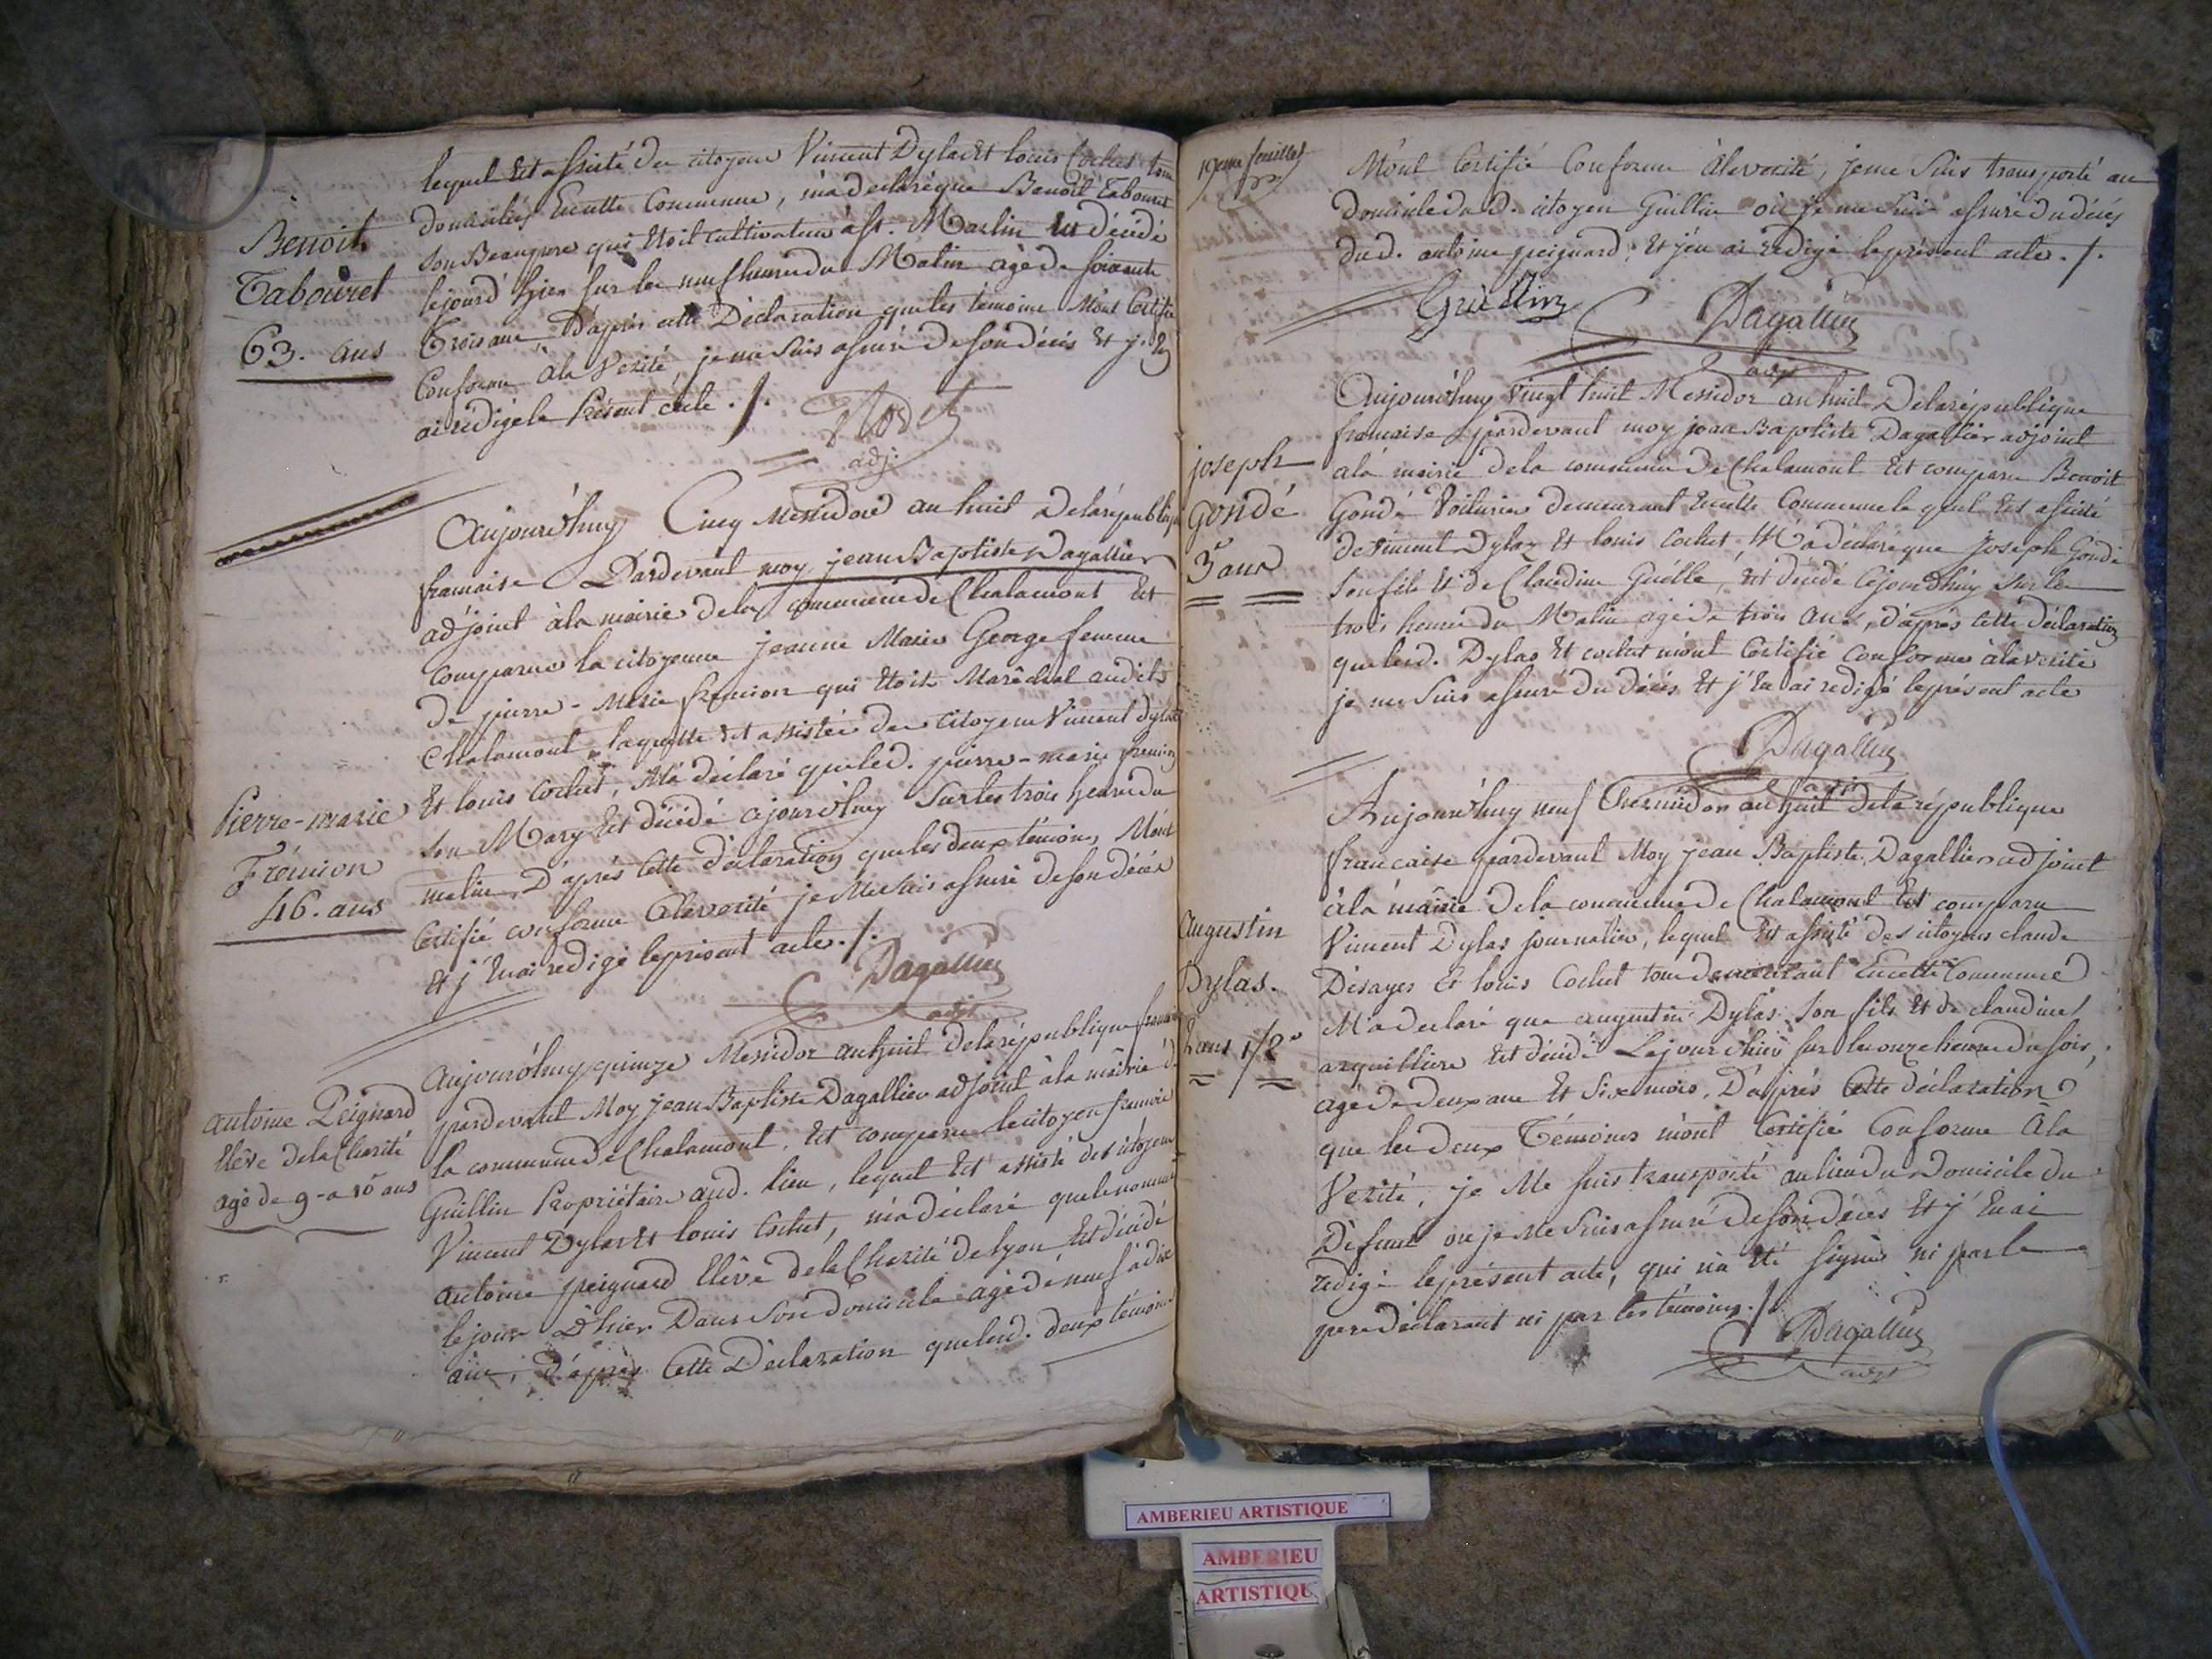 Benoit
Tabouret
63. ans
lequel Est assisté des citoyens Vincent Dylas Et louis Cochet tous
domiciliés En cette Commune, m'a declaré que Benoit Tabouret
son Beaupere qui Etoit cultivateur à St. Martin Est décédé
le jour d'hier sur les neuf heures du Matin agé de soixante
Trois ans, D'après cette Déclaration que les temoins M'ont Certifié
Conforme à la Verité, je me suis assuré de son décés Et j'En
ai rédigé le Présent acte ./.
adj.
Pierre-marie
Frémion
46. ans
Aujourd'huy Cinq Messidor an huit De la république
francaise Pardevant moy jean Baptiste Dagallier
adjoint à la mairie de la commune de Chalamont Est
Comparue la citoyenne jeanne Marie George femme
de pierre-Marie fremion qui Etoit Maréchal audit
Chalamont, laquelle Est assistée des citoyens Vincent dylas
Et louis Cochet, M'a déclaré que led. pierre-marie fremion
son Mary Est décédé ajourd'huy Sur les trois heures du
matin, D'après Cette déclaration que les deux témoins M'ont
Certifié conforme à la verité je Me suis assuré de son décés
Et j'En ai redigé le présent acte ./.
Dagallier
adjt
antoine Peignard
Elêve de la Charité
agé de 9 - a 10 ans
Aujourd'huy quinze Messidor an huit de la république francaise
pardevant Moy jean Baptiste Dagallier adjoint à la mairie de
la commune de Chalamont, Est comparu le citoyen francois
Guillin Propriétaire aud. lieu, lequel Est assisté des citoyens
Vincent Dylas Et louis Cochet, m'a déclaré que le nommé
antoine peignard Elêve de la Charité de lyon, Est décédé
le jour D'hier Dans Son domicile agé de neuf à dix
ans, d'après Cette Déclaration que lesd. deux témoins
19eme feuillet
M'ont Certifié Conforme à la verité, je me suis transporté au
domicile du d. citoyen Guillin où je me suis assuré du décés
du d. antoine peignard, Et j'en ai redigé le présent acte ./.
Guillin
Dagallier
adjt
joseph
gondé
3 ans
Aujourd'huy Vingt huit Messidor an huit De la république
francaise pardevant moy jean Baptiste Dagallier adjoint
à la mairie de la commune de Chalamont Est comparu Benoit
Gondé Voiturier demeurant En cette Commune lequel Est assisté
de Vincent Dylas Et louis Cochet. M'a déclaré que Joseph Gondé
son fils Et de Claudine Guélle, Est décédé Cejourd'huy sur les
trois heures du Matin agé de trois ans, d'après Cette déclaration
que lesd. Dylas Et cochet m'ont Certifié conforme à la verité
je me suis assuré du décés Et j'En ai redigé le présent acte
Dagallier
adjt
Augustin
Dylas.
2 ans 1/2
Aujourd'huy neuf Thermidor an huit de la république
francaise pardevant Moy jean Baptiste Dagallier adjoint
à la mairie de la commune de Chalamont Est comparu
Vincent Dylas journalier, lequel Est assisté des citoyens claude
Désayes Et louis Cochet tous demeurant En cette Commune
M'a declaré que augustin Dylas son fils Et de claudine
arquilliere Est décédé Le jour d'hier sur les onze heures du soir,
agé de deux ans Et Six mois, D'après Cette déclaration
que les deux Témoins m'ont Certifié Conforme à la
Verité, je Me suis transporté au lieu du Domicile du
Défunt ou je Me suis assuré de son décés Et j'En ai
redigé le présent acte, qui n'a Eté signé ni par le
pere déclarant ni par les témoins ./.
Dagallier
adjt
AMBERIEU ARTISTIQUE
AMBERIEU
ARTISTIQU